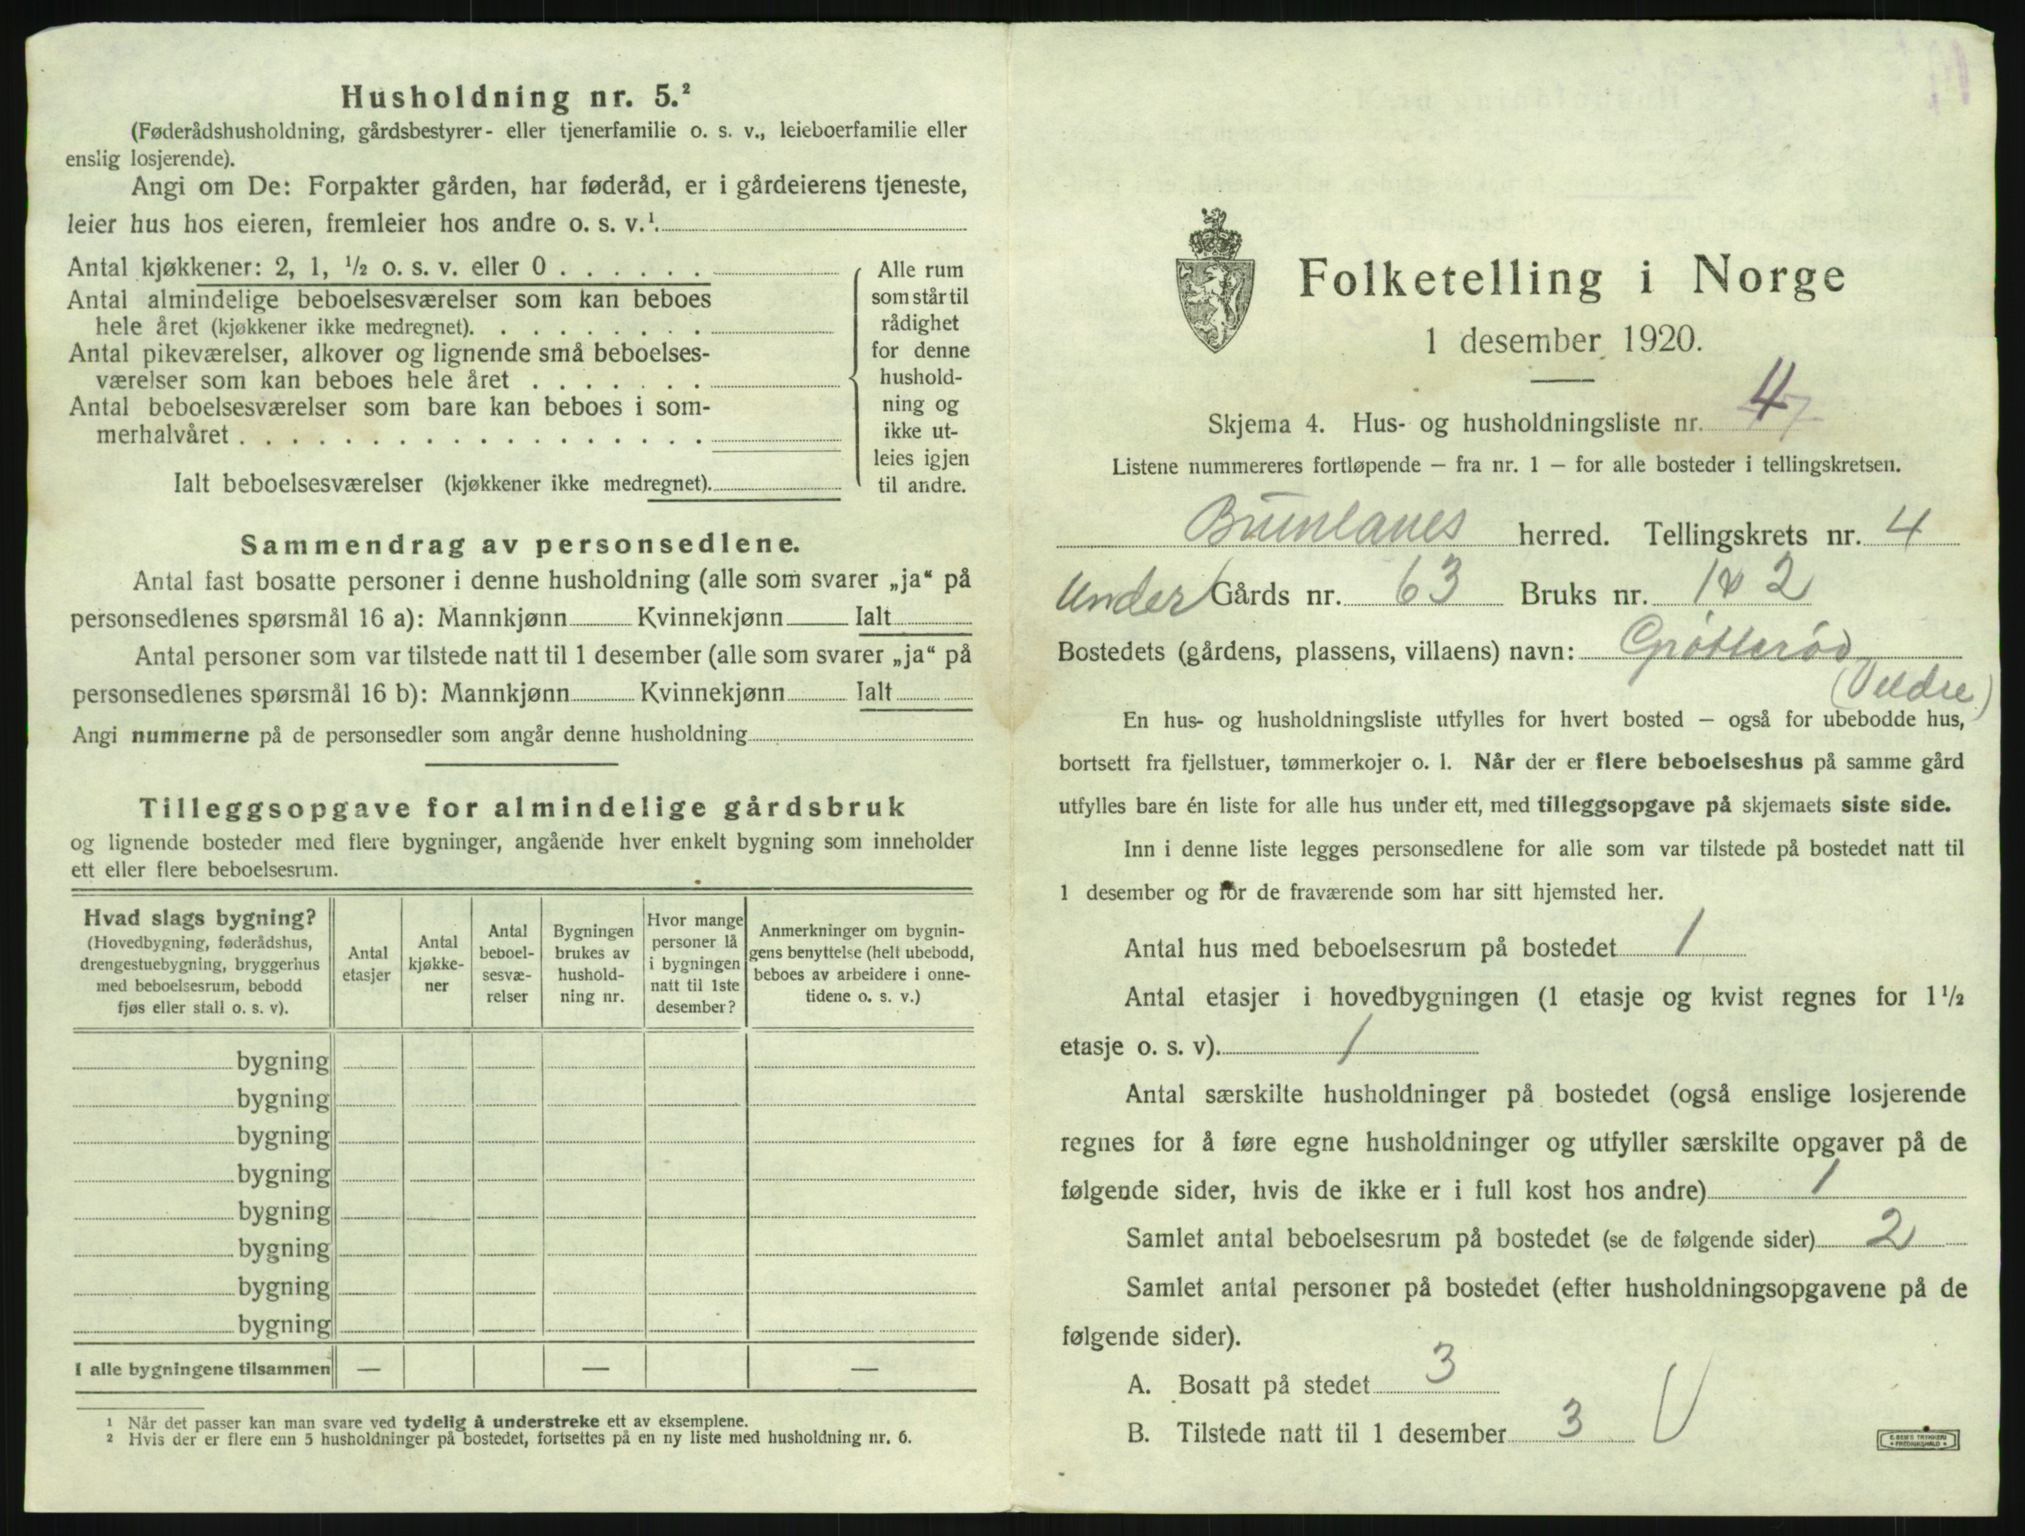 Husholdning nr. 5.²
(Føderådshusholdning, gårdsbestyrer- eller tjenerfamilie o. s. v., leieboerfamilie eller
enslig losjerende).
Angi om De: Forpakter gården, har føderåd, er i gårdeierens tjeneste,
leier hus hos eieren, fremleier hos andre o. s. v.¹.
Antal kjøkkener: 2, 1, ½ o. s. v. eller 0 . . . . . .
Antal almindelige beboelsesværelser som kan beboes
hele året (kjøkkener ikke medregnet). . . . . . . . .
Antal pikeværelser, alkover og lignende små beboelses-
værelser som kan beboes hele året . . . . . . .
Antal beboelsesværelser som bare kan beboes i som-
merhalvåret . . . . . . . . . . . . . . . . . .
Ialt beboelsesværelser (kjøkkener ikke medregnet).
Alle rum
som står til
rådighet
for denne
hushold-
ning og
ikke ut-
leies igjen
til andre.
Sammendrag av personsedlene.
Antal fast bosatte personer i denne husholdning (alle som svarer „ja“ på
personsedlenes spørsmål 16 a): Mannkjønn Kvinnekjønn Ialt
Antal personer som var tilstede natt til 1 desember (alle som svarer „ja“ på
personsedlenes spørsmål 16 b): Mannkjønn Kvinnekjønn Ialt
Angi nummerne på de personsedler som angår denne husholdning
Tilleggsopgave for almindelige gårdsbruk
og lignende bosteder med flere bygninger, angående hver enkelt bygning som inneholder
ett eller flere beboelsesrum.
Hvad slags bygning?
(Hovedbygning, føderådshus,
drengestuebygning, bryggerhus
med beboelsesrum, bebodd
fjøs eller stall o. s. v).
Antal
etasjer
Antal
kjøkke-
ner
Antal
beboel-
sesvæ-
relser
Bygningen
brukes av
hushold-
ning nr.
Hvor mange
personer lå
i bygningen
natt til 1ste
desember?
Anmerkninger om bygnin-
gens benyttelse (helt ubebodd,
beboes av arbeidere i onne-
tidene o. s. v.)
bygning
bygning
bygning
bygning
bygning
bygning
bygning
bygning
I alle bygningene tilsammen — — —
¹ Når det passer kan man svare ved tydelig å understreke ett av eksemplene.
² Hvis der er flere enn 5 husholdninger på bostedet, fortsettes på en ny liste med husholdning nr. 6.
Folketelling i Norge
1 desember 1920.
Skjema 4. Hus- og husholdningsliste nr. 4
Listene nummereres fortløpende — fra nr. 1 — for alle bosteder i tellingskretsen.
Brunlanes herred. Tellingskrets nr. 4
Under Gårds nr. 63 Bruks nr. 1 & 2
Bostedets (gårdens, plassens, villaens) navn: Grøtterød
(Veldre)
En hus- og husholdningsliste utfylles for hvert bosted — også for ubebodde hus,
bortsett fra fjellstuer, tømmerkojer o. l. Når der er flere beboelseshus på samme gård
utfylles bare én liste for alle hus under ett, med tilleggsopgave på skjemaets siste side.
Inn i denne liste legges personsedlene for alle som var tilstede på bostedet natt til
1 desember og for de fraværende som har sitt hjemsted her.
Antal hus med beboelsesrum på bostedet 1
Antal etasjer i hovedbygningen (1 etasje og kvist regnes for 1½
etasje o. s. v). 1
Antal særskilte husholdninger på bostedet (også enslige losjerende
regnes for å føre egne husholdninger og utfyller særskilte opgaver på de
følgende sider, hvis de ikke er i full kost hos andre) 1
Samlet antal beboelsesrum på bostedet (se de følgende sider) 2
Samlet antal personer på bostedet (efter husholdningsopgavene på de
følgende sider).
A. Bosatt på stedet 3
B. Tilstede natt til 1 desember 3
E. SEM'S TRYKKERI
FREDRIKSHALD